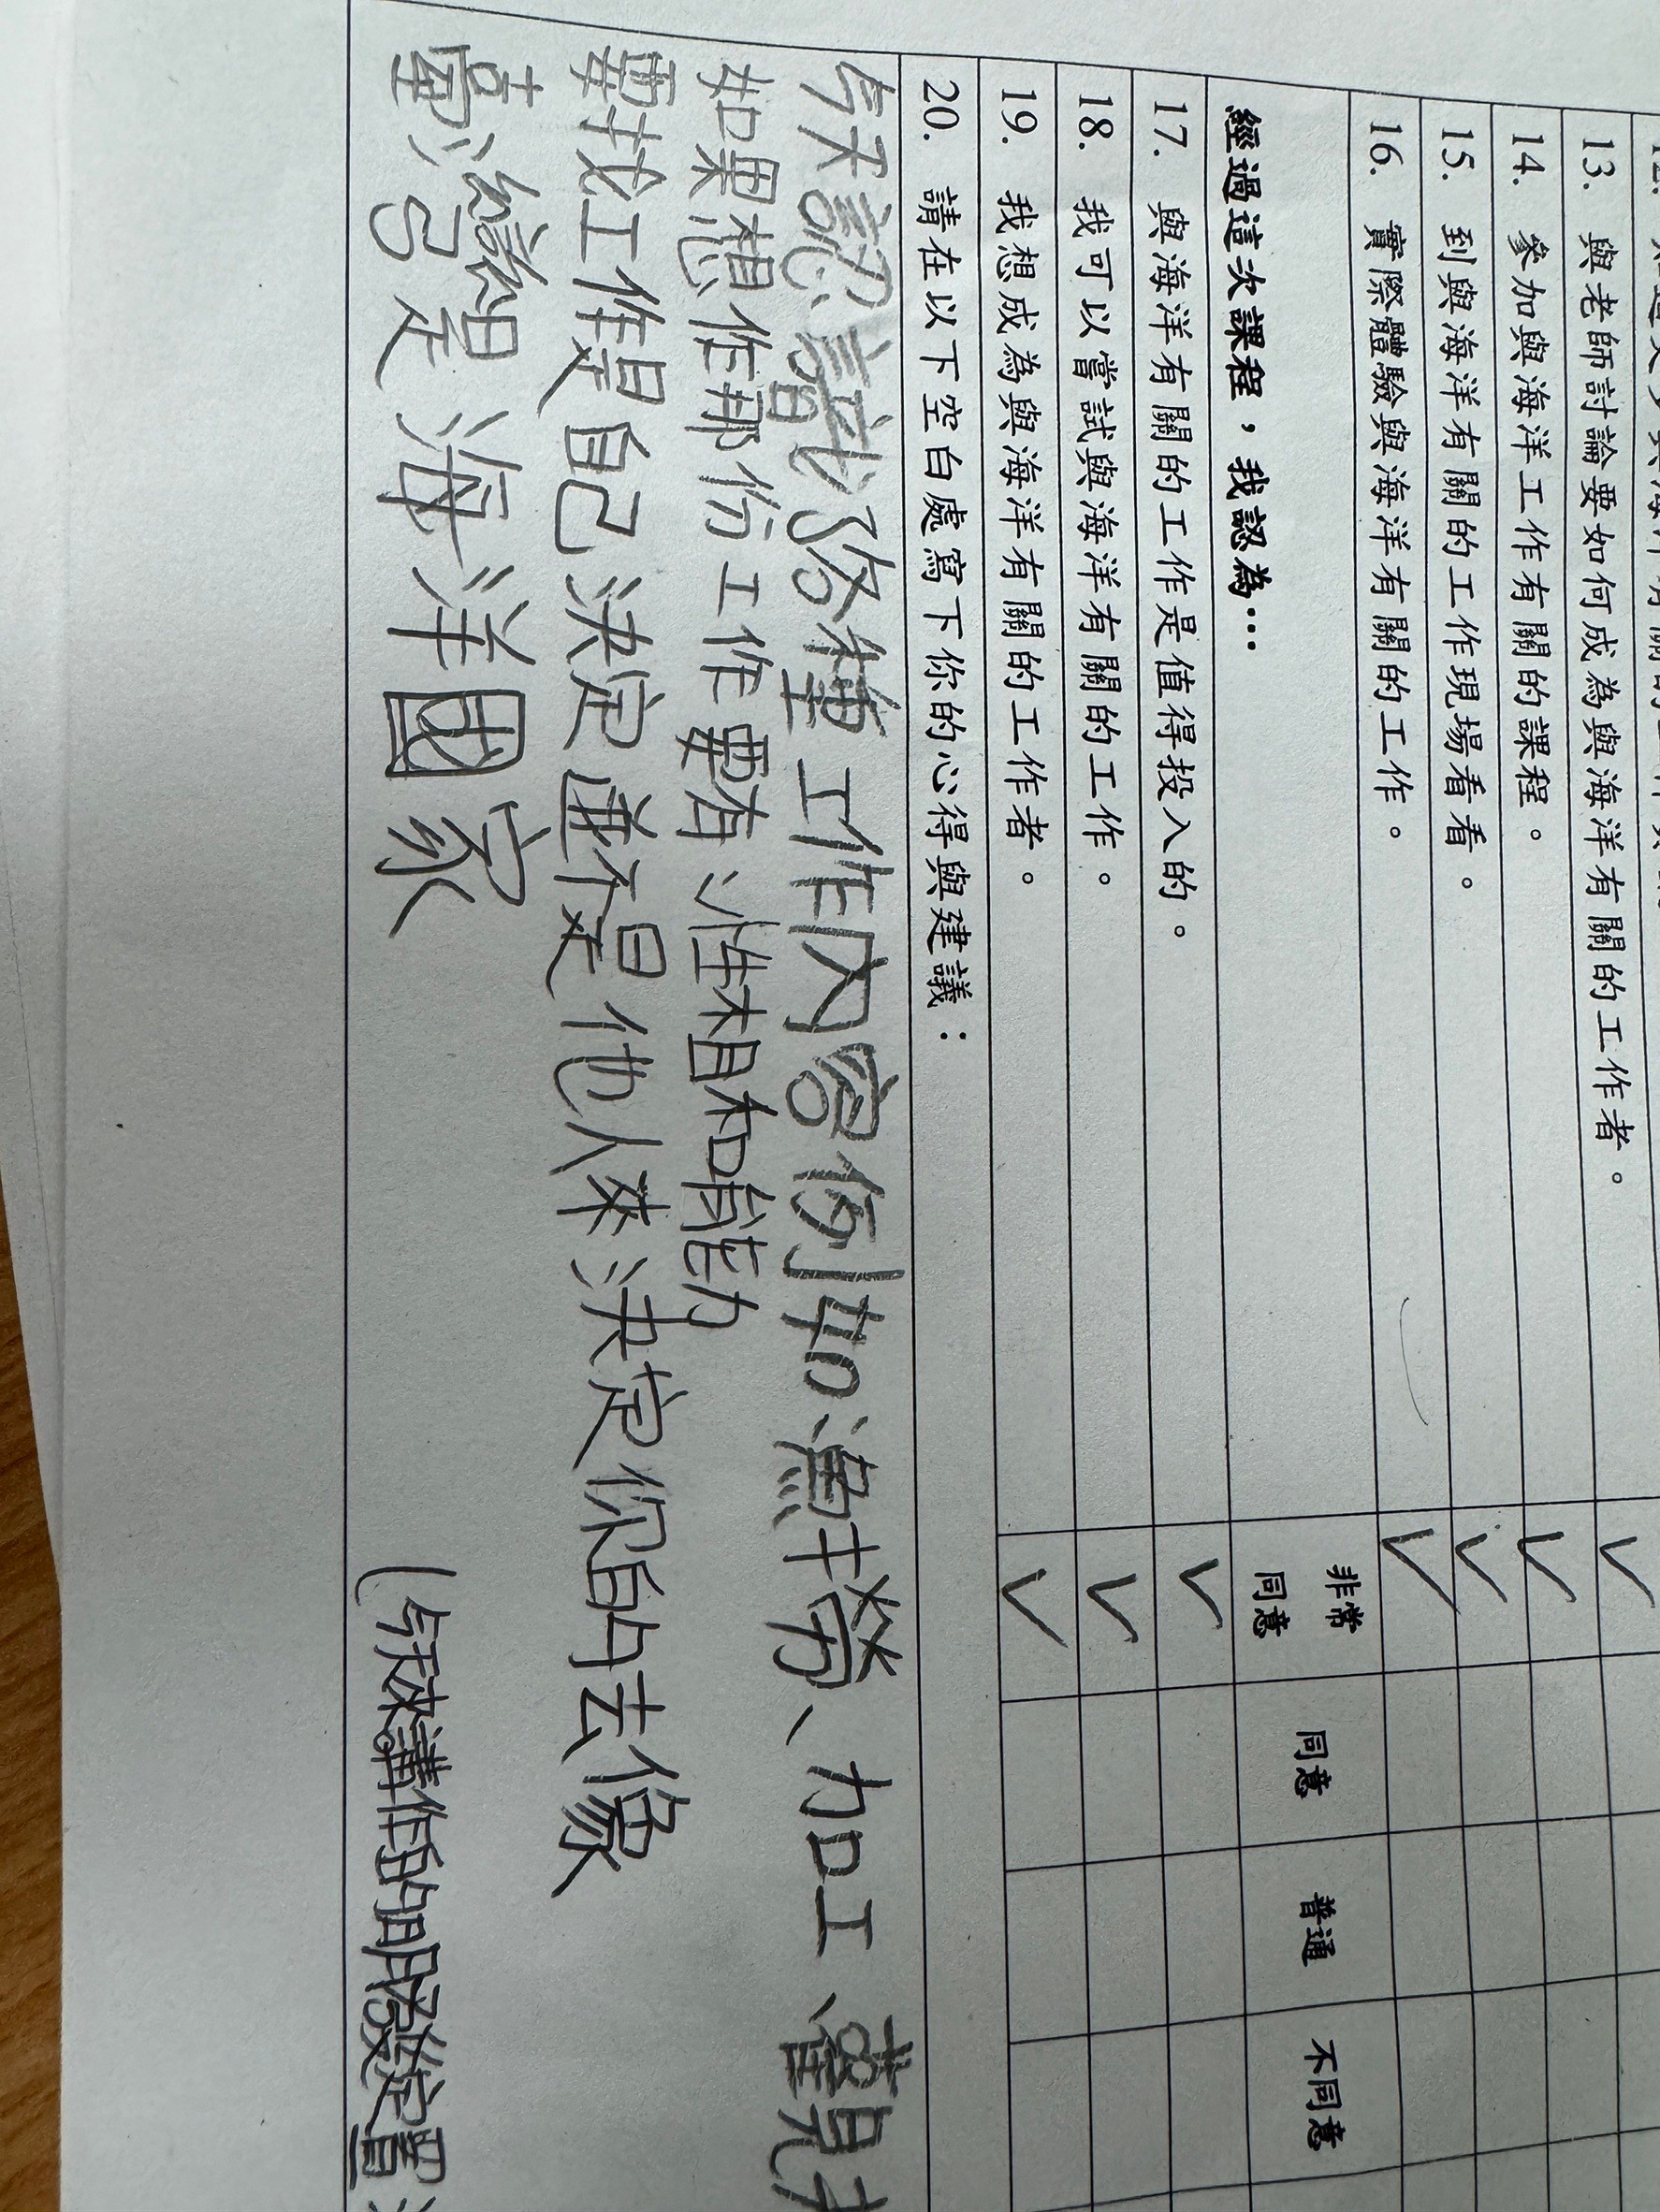 13. 與老師討論要如何成為與海洋有關的工作者。
14. 參加與海洋工作有關的課程。
15. 到與海洋有關的工作現場看看。
16. 實際體驗與海洋有關的工作。
經過這次課程，我認為… 非常同意 同意 普通 不同意
17. 與海洋有關的工作是值得投入的。
18. 我可以嘗試與海洋有關的工作。
19. 我想成為與海洋有關的工作者。
20. 請在以下空白處寫下你的心得與建議：
今天認識了各種工作內容例如漁撈、加工、觀
如果想作那份工作要有性相和能力
要找工作是自己決定並不是他人來決定你的去像
臺灣是海洋國家
(今天講師的